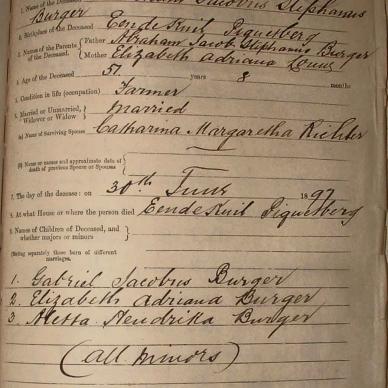 1. Name of the Deceased Jacobus Stephanus
Burger
2. Birthplace of the Deceased Eendekuil Piquetberg
3. Names of the Parents of the Deceased { Father Abraham Jacob Stephanus Burger
Mother Elizabeth Adriana Louw
4. Age of the Deceased 51 years 8 months
5. Condition in life (occupation) Farmer
6. Married or Unmarried, Widower or Widow } Married
(a) Name of Surviving Spouse Catharina Margaretha Richter
(b) Name or names and approximate date of death of previous Spouse or Spouses
7. The day of the decease: on 30th June 1897
8. At what House or where the person died Eendekuil Piquetberg
9. Names of Children of Deceased, and whether majors or minors
(Stating separately those born of different marriages.
1. Gabriel Jacobus Burger
2. Elizabeth Adriana Burger
3. Aletta Hendrika Burger
(all minors)